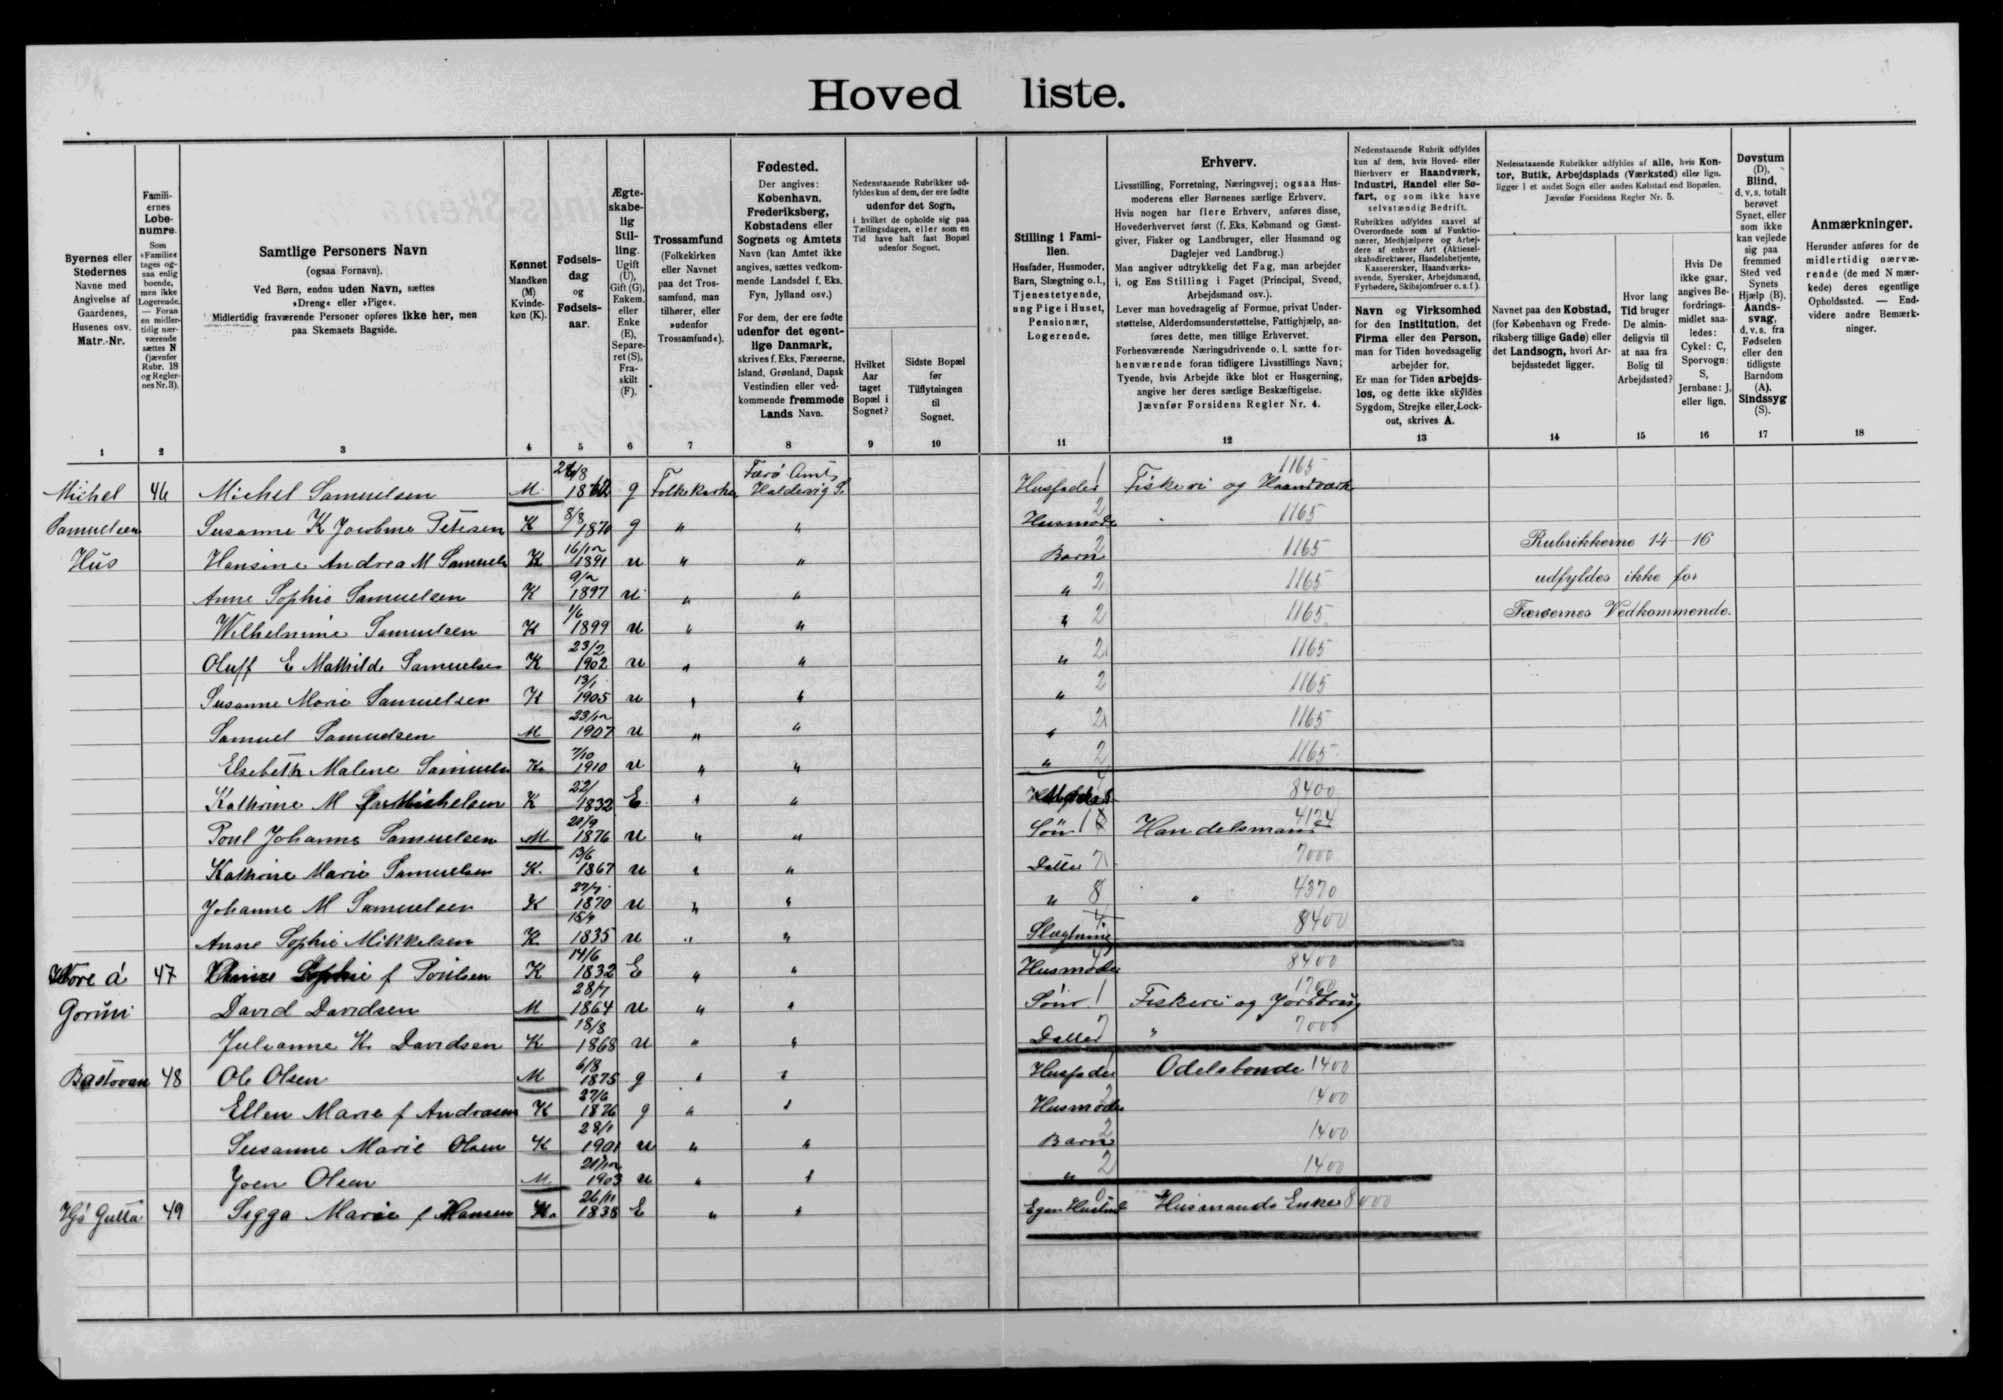 Hoved liste.
Byernes eller Stedernes Navne med Angivelse af Gaardenes, Husenes osv. Matr.-Nr.
Famili-
ernes
Løbe-
numre.
Som »Familie« tages og-
saa enlig boende, men ikke Logerende. — Foran en midler-
tidig nær-
værende sættes N (jævnfør Rubr. 18 og Regler-
nes Nr. 3).
Samtlige Personers Navn
(ogsaa Fornavn).
Ved Børn, endnu uden Navn, sættes
»Dreng« eller »Pige«.
Midlertidig fraværende Personer opføres ikke her, men
paa Skemaets Bagside.
Kønnet
Mandkøn
(M)
Kvinde-
køn (K).
Fødsels-
dag
og
Fødsels-
aar.
Ægte-
skabe-
lig
Stil-
ling.
Ugift
(U),
Gift (G),
Enkem.
eller
Enke
(E),
Separe-
ret (S),
Fra-
skilt
(F).
Trossamfund
(Folkekirken
eller Navnet
paa det Tros-
samfund, man
tilhører, eller
»udenfor
Trossamfund«).
Fødested.
Der angives:
København,
Frederiksberg,
Købstadens eller
Sognets og Amtets
Navn (kan Amtet ikke
angives, sættes vedkom-
mende Landsdel f. Eks.
Fyn, Jylland osv.)
For dem, der ere fødte
udenfor det egent-
lige Danmark,
skrives f. Eks. Færøerne,
Island, Grønland, Dansk
Vestindien eller ved-
kommende fremmede
Lands Navn.
Nedenstaaende Rubrikker ud-
fyldes kun af dem, der ere fødte
udenfor det Sogn,
i hvilket de opholde sig paa
Tællingsdagen, eller som en
Tid have haft fast Bopæl
udenfor Sognet.
Hvilket
Aar
taget
Bopæl i
Sognet?
Sidste Bopæl
før
Tilflytningen
til
Sognet.
Stilling i Fami-
lien.
Husfader, Husmoder,
Barn, Slægtning o. l.,
Tjenestetyende,
ung Pige i Huset,
Pensionær,
Logerende.
Erhverv.
Livsstilling, Forretning, Næringsvej; ogsaa Hus-
moderens eller Børnenes særlige Erhverv.
Hvis nogen har flere Erhverv, anføres disse,
Hovederhvervet først (f. Eks. Købmand og Gæst-
giver, Fisker og Landbruger, eller Husmand og
Daglejer ved Landbrug.)
Man angiver udtrykkelig det Fag, man arbejder
i, og Ens Stilling i Faget (Principal, Svend,
Arbejdsmand osv.).
Lever man hovedsagelig af Formue, privat Under-
støttelse, Alderdomsunderstøttelse, Fattighjælp, an-
føres dette, men tillige Erhvervet.
Forhenværende Næringsdrivende o. l. sætte for-
henværende foran tidligere Livsstillings Navn;
Tyende, hvis Arbejde ikke blot er Husgerning,
angive her deres særlige Beskæftigelse.
Jævnfør Forsidens Regler Nr. 4.
Nedenstaaende Rubrik udfyldes
kun af dem, hvis Hoved- eller
Bierhverv er Haandværk,
Industri, Handel eller Sø-
fart, og som ikke have
selvstændig Bedrift.
Rubrikken udfyldes saavel af
Overordnede som af Funktio-
nærer, Medhjælpere og Arbej-
dere af enhver Art (Aktiesel-
skabsdirektører, Handelsbetjente,
Kasserersker, Haandværks-
svende, Syersker, Arbejdsmænd,
Fyrbødere, Skibsjomfruer o. s. f.).
Navn og Virksomhed
for den Institution, det
Firma eller den Person,
man for Tiden hovedsagelig
arbejder for.
Er man for Tiden arbejds-
løs, og dette ikke skyldes
Sygdom, Strejke eller Lock-
out, skrives A.
Nedenstaaende Rubrikker udfyldes af alle, hvis Kon-
tor, Butik, Arbejdsplads (Værksted) eller lign.
ligger i et andet Sogn eller anden Købstad end Bopælen.
Jævnfør Forsidens Regler Nr. 5.
Navnet paa den Købstad,
(for København og Frede-
riksberg tillige Gade) eller
det Landsogn, hvori Ar-
bejdsstedet ligger.
Hvor lang
Tid bruger
De almin-
deligvis til
at naa fra
Bolig til
Arbejdssted?
Hvis De
ikke gaar,
angives Be-
fordrings-
midlet saa-
ledes:
Cykel: C,
Sporvogn:
S,
Jernbane: J,
eller lign.
Døvstum
(D),
Blind,
d. v. s. totalt
berøvet
Synet, eller
som ikke
kan vejlede
sig paa
fremmed
Sted ved
Synets
Hjælp (B).
Aands-
svag,
d. v. s. fra
Fødselen
eller den
tidligste
Barndom
(A).
Sindssyg
(S).
Anmærkninger.
Herunder anføres for de
midlertidig nærvæ-
rende (de med N mær-
kede) deres egentlige
Opholdssted. — End-
videre andre Bemærk-
ninger.
1 2 3 4 5 6 7 8 9 10 11 12 13 14 15 16 17 18
Michel 46 Michel Samuelsen M. 1872 g Folkekirke Færø Amt, Haldevig S. Husfader 1 Fiskeri og Haandværk 1165
Samuelsen Susanne K Jacobine Petersen K 8/8 1870 g " " Husmode 2 1165
Hus Hansine Andrea M Samuels K 16/12 1891 u " " Barn 2 1165
Anne Sophie Samuelsen K 9/2 1897 u " " " 2 1165
Wilhelmine Samuelsen K 1/6 1899 u " " " 2 1165
Oluff E Mathilde Samuelsen K 23/2 1902 u " " " 2 1165
Susanne Marie Samuelsen K 13/1 1905 u " " " 2 1165
Samuel Samuelsen M 23/12 1907 u " " " 2 1165
Elsebeth Malene Samuels K 7/10 1910 u " " " 2 1165
Rubrikkerne 14-16
udfyldes ikke for
Færøernes Vedkommende.
Kathrine M Michelsen K 22/1 1832 E " " 8400
Poul Johannes Samuelsen M 20/9 1876 u " " Søn 1 Handelsmand 4124
Kathrine Marie Samuelsen K. 13/6 1867 u " " Datter 7 7000
Johanne M Samuelsen K 27/7 1870 u " " " 8 " 4370
Anne Sophie Mikkelsen K 15/9 1835 u " " Slægtning 8400
Nore á 47 f Poulsen K 14/6 1832 E " " Husmoder 8400
Goruni David Davidsen M 28/7 1864 u " " Søn 1 Fiskeri og Jordbrug 1760
Julianne K. Davidsen K 18/8 1868 u " " Datter 7 " 7000
Bastovan 48 Ole Olsen M 6/8 1875 g " " Husfader Odelsbonde 1400
Ellen Marie f Andreasen K 27/6 1876 g " " Husmoder 2 1400
Susanne Marie Olsen K 28/1 1901 u " " Barn 2 1400
Joen Olsen M 21/12 1903 u " " " 2 1400
Hjá Gutta 49 Sigga Marie f Hansen K. 26/11 1838 E " " Egen Husstand Husmands Enke 8000